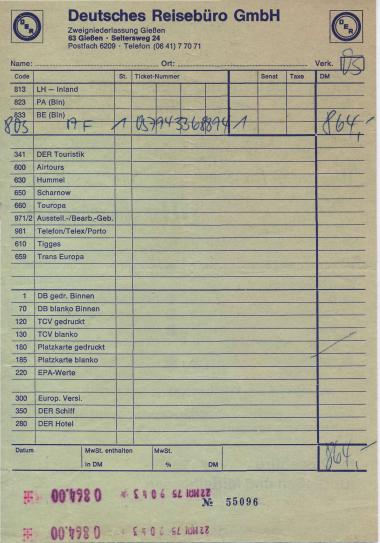 DER Deutsches Reisebüro GmbH DER
Zweigniederlassung Gießen
63 Gießen · Seltersweg 24
Postfach 6209 · Telefon (06 41) 7 70 71
Name: Ort: Verk. ÜS
Code St. Ticket-Nummer Senat Taxe DM
813 LH — Inland
823 PA (Bln)
833 BE (Bln)
805 AF 1 057943368894 1 864,-
341 DER Touristik
600 Airtours
630 Hummel
650 Scharnow
660 Touropa
971/2 Ausstell.-/Bearb.-Geb.
981 Telefon/Telex/Porto
610 Tigges
659 Trans Europa
1 DB gedr. Binnen
70 DB blanko Binnen
120 TCV gedruckt
130 TCV blanko
180 Platzkarte gedruckt
185 Platzkarte blanko
220 EPA-Werte
300 Europ. Versi.
350 DER Schiff
280 DER Hotel
Datum MwSt. enthalten MwSt. 864,-
in DM % DM
22 MAI 75 9043 0864.00
№ 55096
22 MAI 75 9043 0864.00